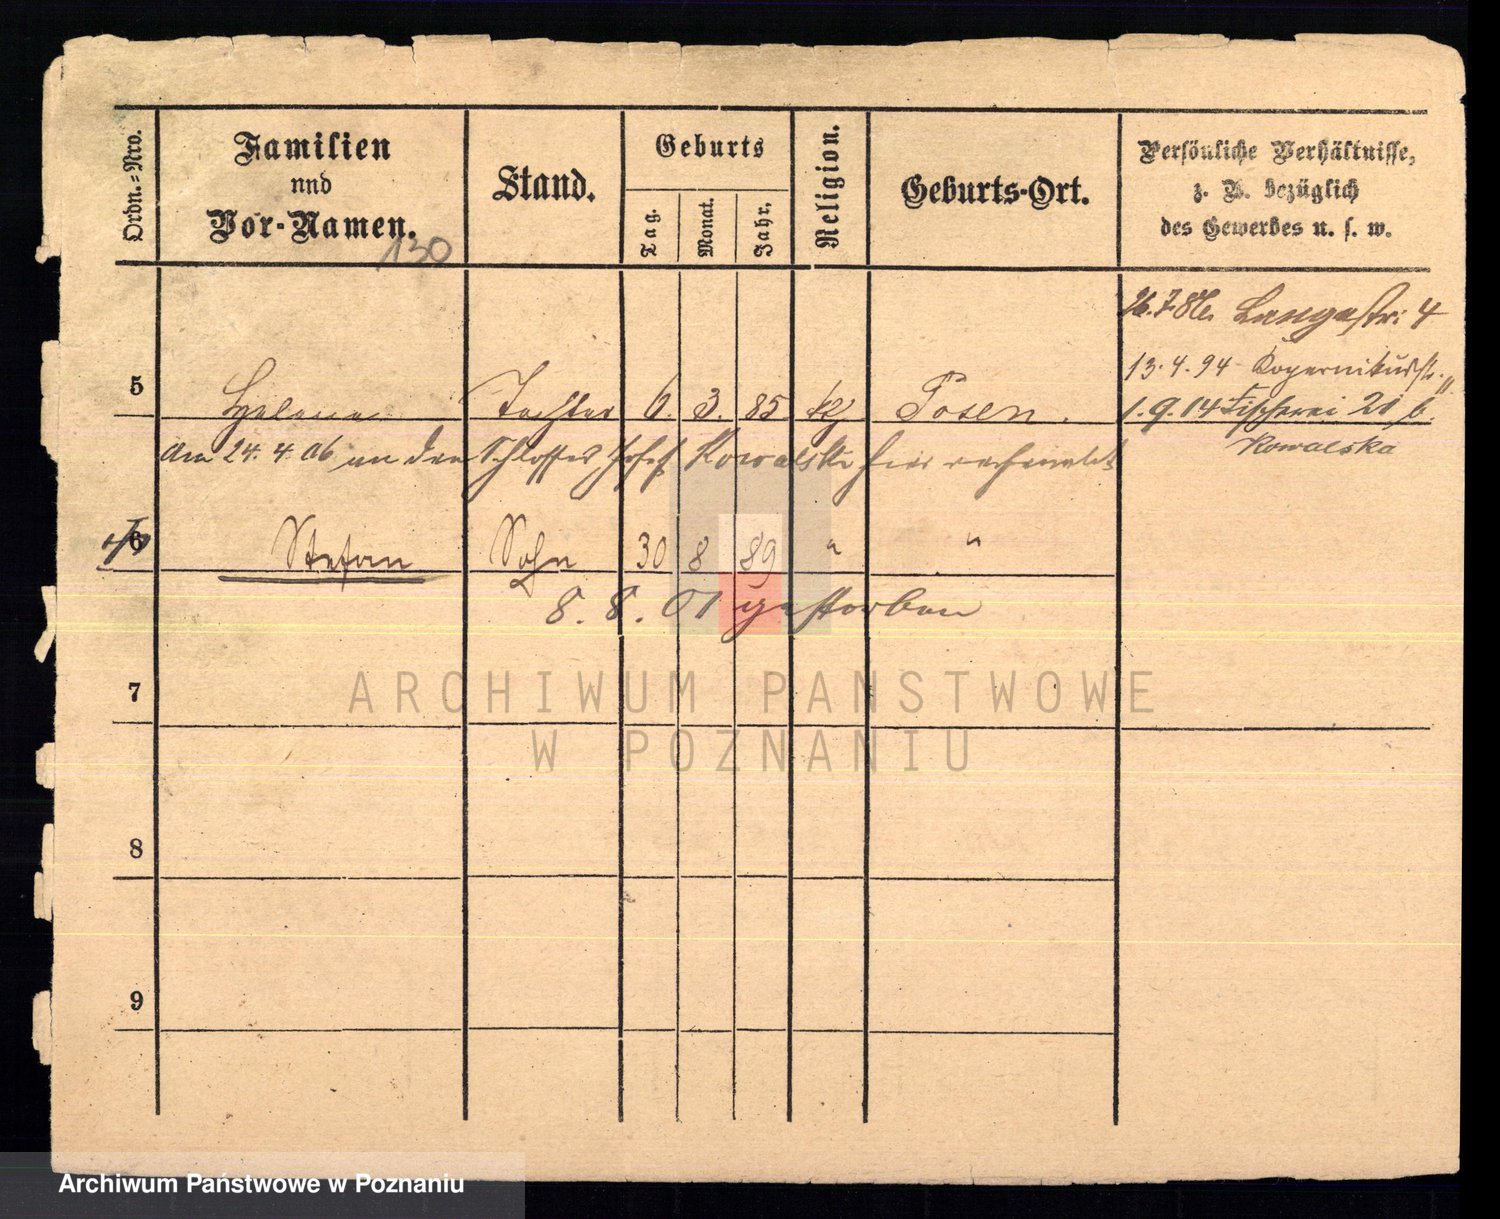 Ordn.-Nro.
Familien
und
Vor-Namen.
130
Stand.
Geburts
Tag.
Monat.
Jahr.
Religion.
Geburts-Ort.
Persönliche Verhältnisse,
z. B. bezüglich
des Gewerbes u. s. w.
26.7.86. Langestr: 4
13.4.94 Kopernikusstr.
5 Helena Tochter 6. 3. 85. k Posen. 1.9.14 Fischerei 20 b.
Kowalska
am 24.4.06 an den Schlosser Josef Kowalski hier verheiratet
6 Stefan Sohn 30 8 89 " "
8. 8. 01 gestorben
7
ARCHIWUM PAŃSTWOWE
W POZNANIU
8
9
Archiwum Państwowe w Poznaniu